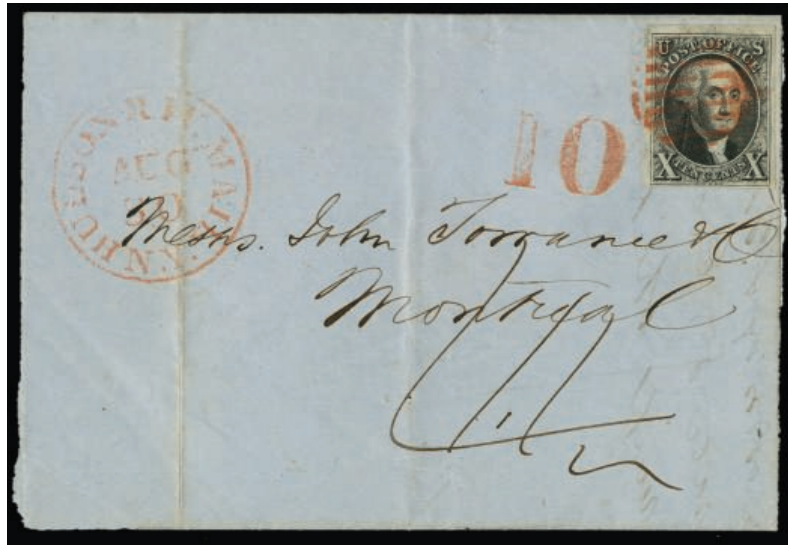 U S
POST OFFICE
X TEN CENTS X
10
HUDSON RIV. MAIL N.Y.
AUG
30
Messrs. John Torrance & Co
Montreal